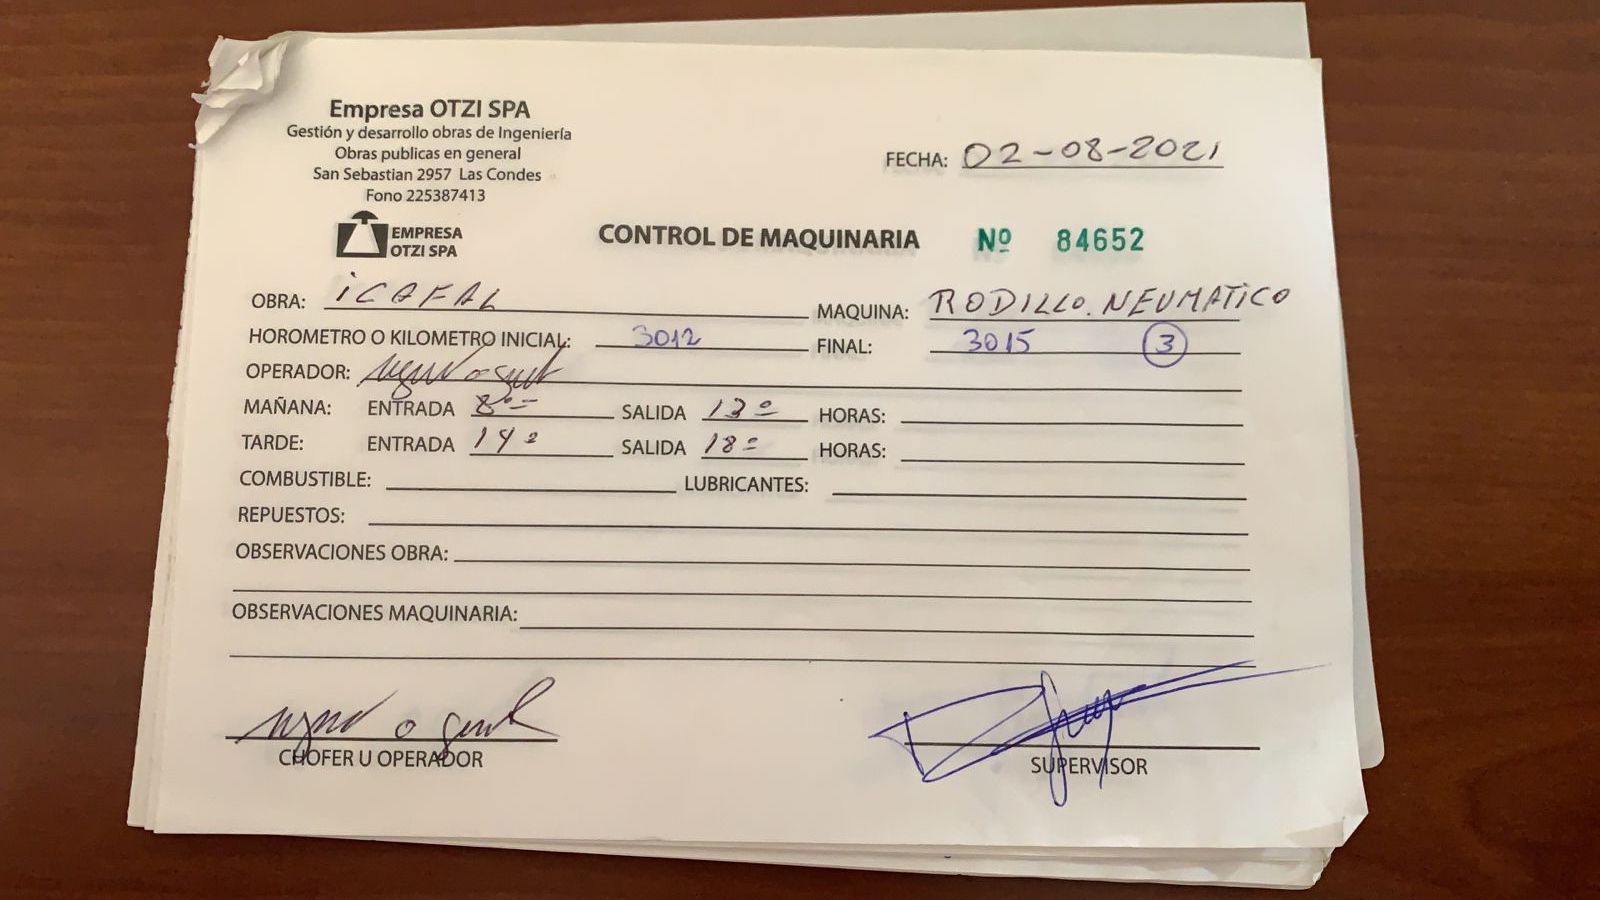 Empresa OTZI SPA
Gestión y desarrollo obras de Ingeniería
Obras publicas en general
San Sebastian 2957 Las Condes
Fono 225387413
FECHA: 02-08-2021
EMPRESA
OTZI SPA
CONTROL DE MAQUINARIA Nº 84652
OBRA: iCAFAL MAQUINA: RODILLO. NEUMATICO
HOROMETRO O KILOMETRO INICIAL: 3012 FINAL: 3015 3
OPERADOR:
MAÑANA: ENTRADA 8:00 SALIDA 13º HORAS:
TARDE: ENTRADA 14º SALIDA 18º HORAS:
COMBUSTIBLE: LUBRICANTES:
REPUESTOS:
OBSERVACIONES OBRA:
OBSERVACIONES MAQUINARIA:
CHOFER U OPERADOR SUPERVISOR